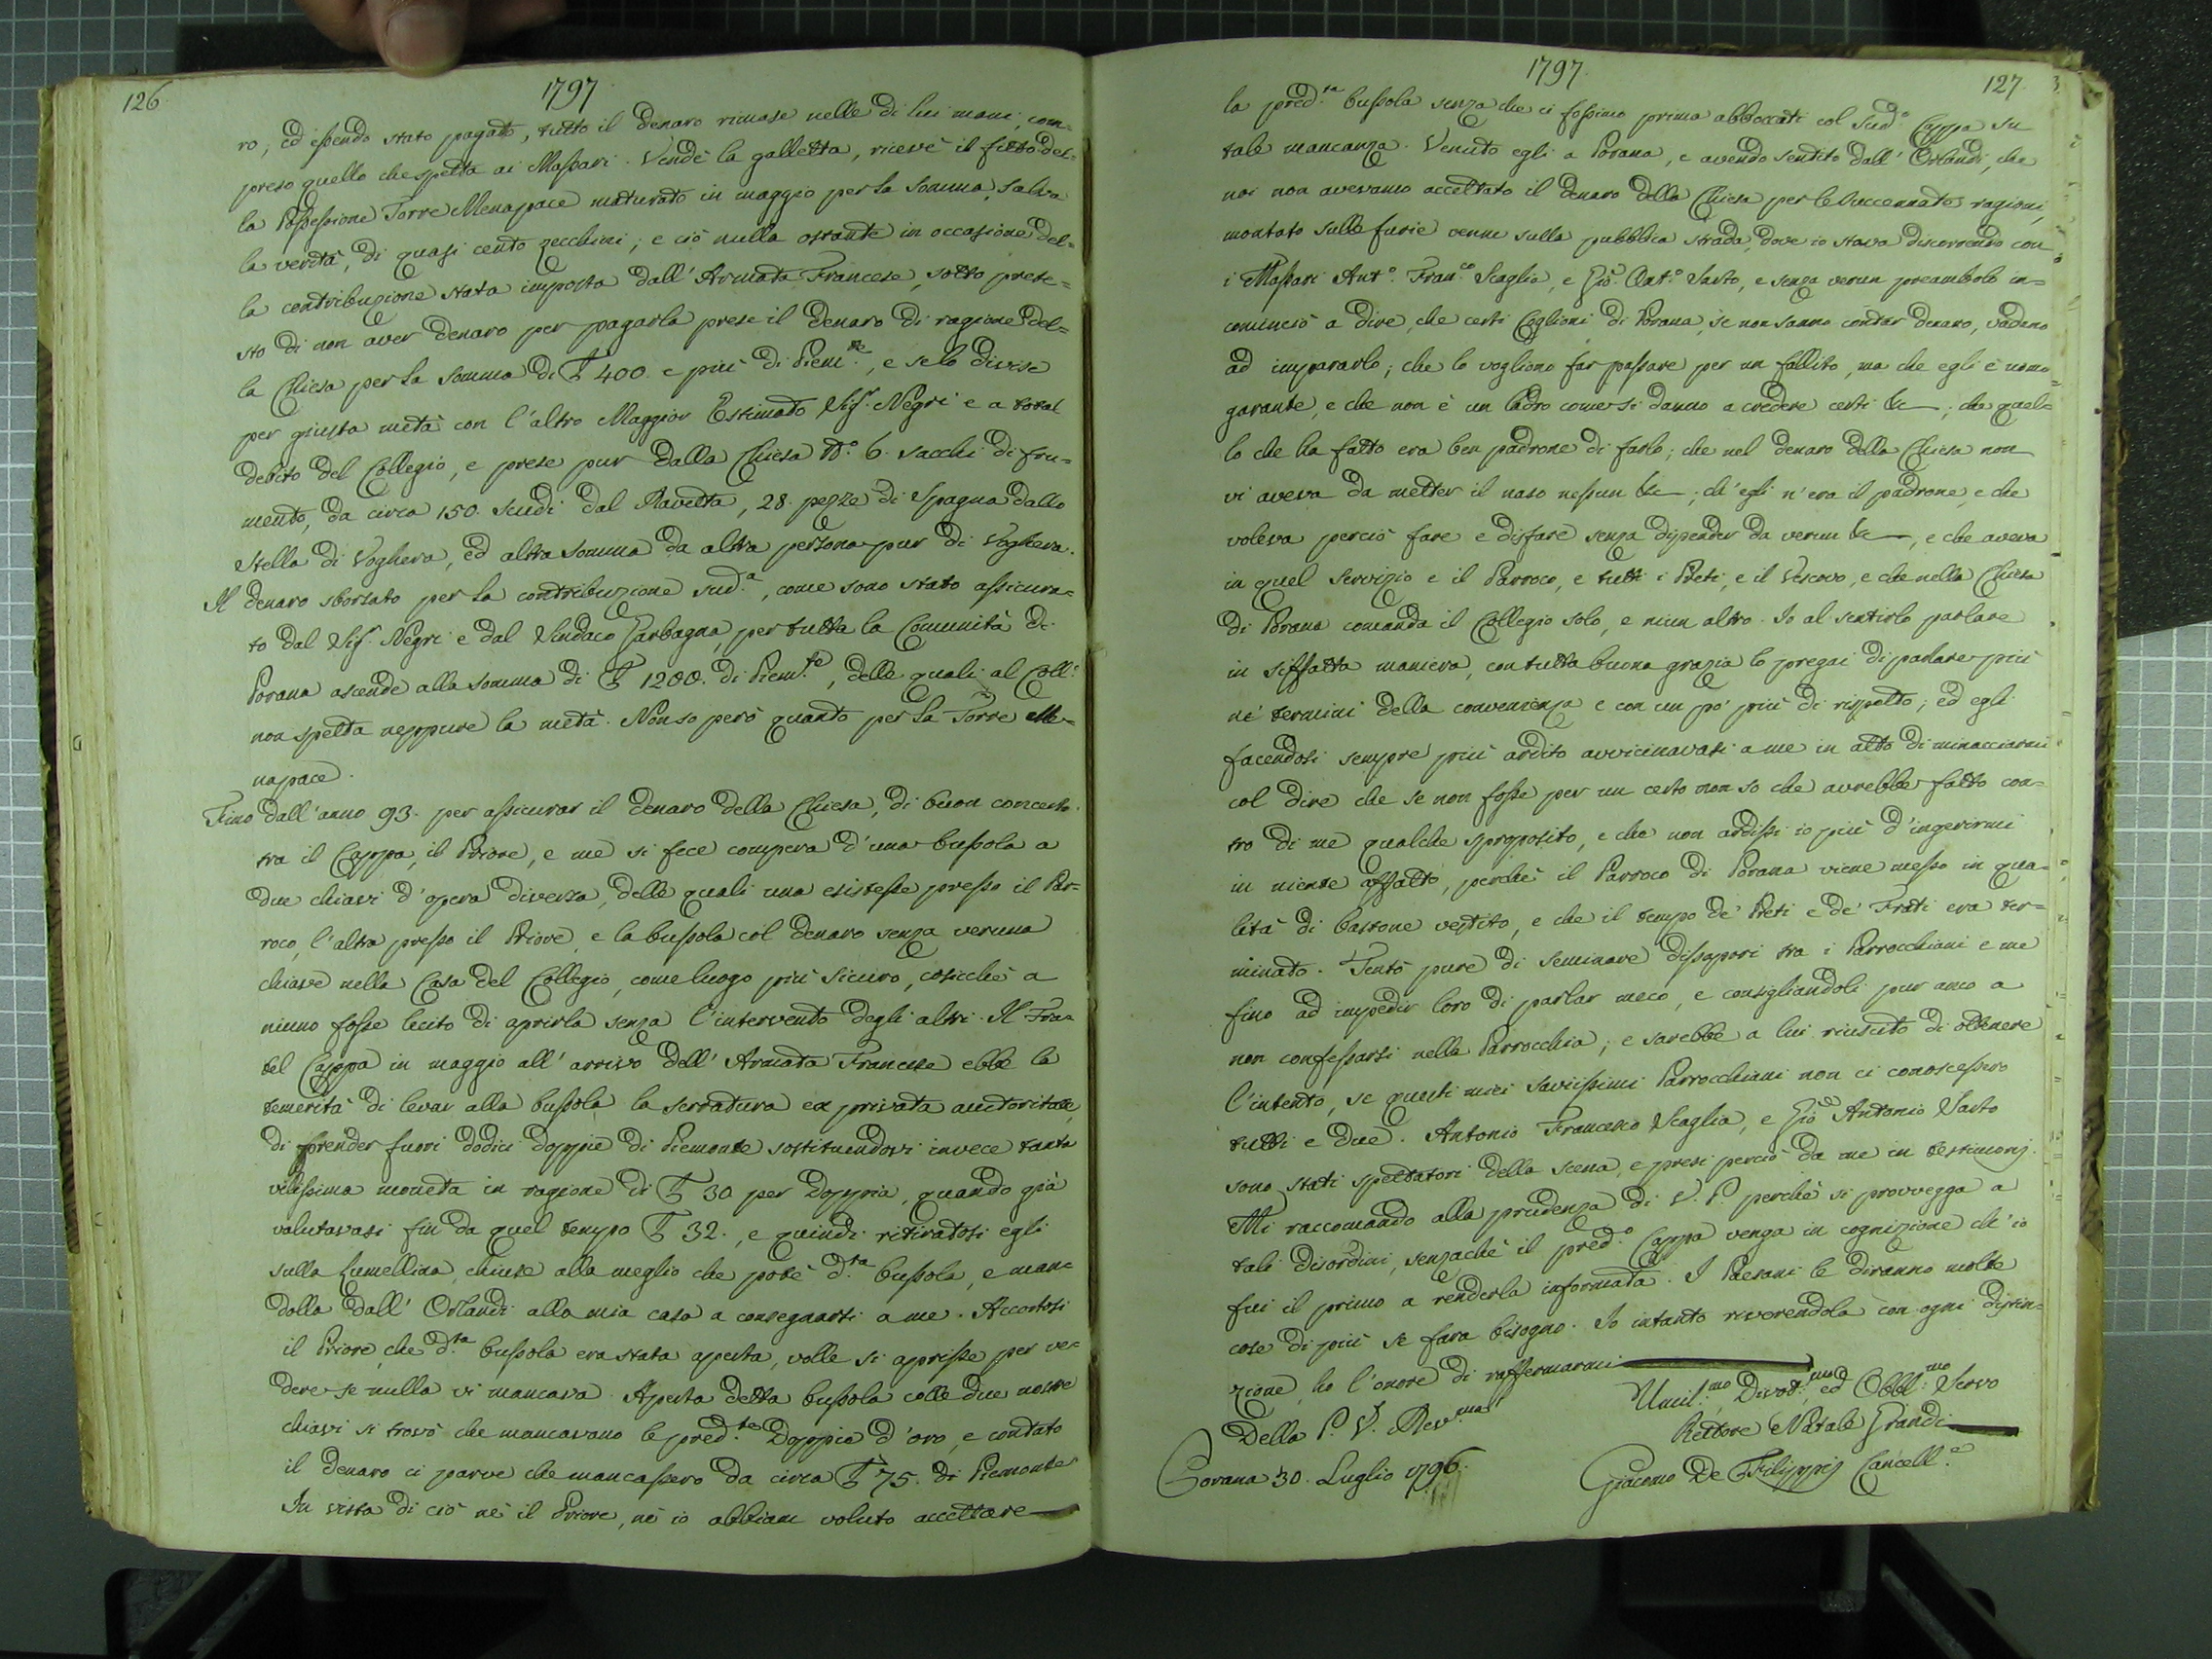 126
1797
ro, ed essendo stato pagato, tutto il denaro rimase nelle di lui mani, com-
preso quello che spetta ai Massari. Vendè la galletta, ricevè il fitto del-
la Possessione Torre Menapace maturato in maggio per la somma, salva
la verità, di quasi cento zecchini; e ciò nulla ostante in occasione del-
la contribuzione stata imposta dall' Armata Francese, sotto prete-
sto di non aver denaro per pagarla prese il denaro di ragione del-
la Chiesa per la somma di ₤ 400. e più di Piem.te, e se lo divise
per giusta metà con l'altro Maggior Estimato Sig. Negri e a total
debito del Collegio, e prese pur dalla Chiesa N.° 6. sacchi di fru-
mento, da circa 150. scudi dal Ravetta, 28. pezze di Spagna dallo
Stella di Voghera, ed altra somma da altra persona pur di Voghera.
Il denaro sborsato per la contribuzione sud.a, come sono stato assicura-
to dal Sig. Negri e dal Sindaco Garbagna, per tutta la Comunità di
Porana ascende alla somma di ₤ 1200. di Piem.te, delle quali al Coll.°
non spetta neppure la metà. Non so però quanto per la Torre Me-
napace.
Fino dall'anno 93. per assicurar il denaro della Chiesa, di buon concerto
tra il Cappa, il Priore, e me si fece compera d'una bussola a
due chiavi d'opera diversa, delle quali una esistesse presso il Par-
roco, l'altra presso il Priore, e la bussola col denaro senza veruna
chiave nella Casa del Collegio, come luogo più sicuro, cosicchè a
niuno fosse lecito di aprirla senza l'intervento degli altri. Il Fra-
tel Cappa in maggio all' arrivo dell' Armata Francese ebbe la
temerità di levar alla bussola la serratura ex privata auctoritate,
di prender fuori dodici doppie di Piemonte sostituendovi invece tanta
vilissima moneta in ragione di ₤ 30 per Doppia, quando già
valutavasi fin da quel tempo ₤ 32., e quindi ritiratosi egli
sulla Lumellina, chiuse alla meglio che potè d.ta bussola, e man-
dolla dall' Orlandi alla mia casa a consegnarsi a me. Accortosi
il Priore, che d.ta bussola era stata aperta, volle si aprisse per ve-
dere se nulla vi mancava. Aperta detta bussola colle due nostre
chiavi si trovò che mancavano le pred.te Doppie d'oro, e contato
il denaro ci parve che mancassero da circa ₤ 75. di Piemonte
In vista di ciò nè il Priore, nè io abbiam voluto accettare
1797.
127.
la pred.ta bussola senza che ci fossimo prima abboccati col sud.° Cappa su
tale mancanza. Venuto egli a Porana, e avendo sentito dall' Orlandi, che
noi non avevamo accettato il denaro della Chiesa per le succennate ragioni,
montato sulle furie venne sulla pubblica strada, dove io stava discorrendo con
i Massari Ant.° Fran.co Scaglia, e Gio. Ant.° Sarto, e senza verun preambolo in-
cominciò a dire, che certi Coglioni di Porana, se non sanno contar denaro, vadano
ad impararlo; che lo vogliono far passare per un fallito, ma che egli è uomo
garante, e che non è un ladro come si danno a credere certi &c; che quel-
lo che ha fatto era ben padrone di farlo; che nel denaro della Chiesa non
vi aveva da metter il naso nessun &c; ch'egli n'era il padrone, e che
voleva perciò fare e disfare senza dipender da verun &c, e che aveva
in quel servizio e il Parroco, e tutti i Preti, e il Vescovo, e che nella Chiesa
di Porana comanda il Collegio solo, e niun altro. Io al sentirlo parlare
in siffatta maniera, con tutta buona grazia lo pregai di parlare più
ne' termini della convenienza e con un po' più di rispetto; ed egli
facendosi sempre più ardito avvicinavasi a me in atto di minacciarmi
col dire che se non fosse per un certo non so che avrebbe fatto con-
tro di me qualche sproposito, e che non ardissi io più d'ingerirmi
in niente affatto, perchè il Parroco di Porana viene messo in qua-
lità di bastone vestito, e che il tempo de' Preti e de' Frati era ter-
minato. Tentò pure di seminare dissapori tra i Parrocchiani e me
fino ad impedir loro di parlar meco, e consigliandoli pur anco a
non confessarsi nella Parrocchia; e sarebbe a lui riuscito di ottenere
l'intento, se questi miei saviissimi Parrocchiani non ci conoscessero
tutti e due. Antonio Francesco Scaglia, e Gio Antonio Sarto
sono stati spettatori della scena, e presi perciò da me in testimonj.
Mi raccomando alla prudenza di V. P. perchè si provvegga a
tali disordini, senzachè il pred.° Cappa venga in cognizione ch'io
fui il primo a renderla informata. I Paesani le diranno molte
cose di più se fara bisogno. Io intanto riverendola con ogni distin-
zione, ho l'onore di raffermarmi
Della P. V. Rev.ma
Umil.mo Divot.mo ed Obbl.mo Servo
Rettore Natale Grandi
Porana 30. Luglio 1796.
Giacomo De Filippij Cancell.e